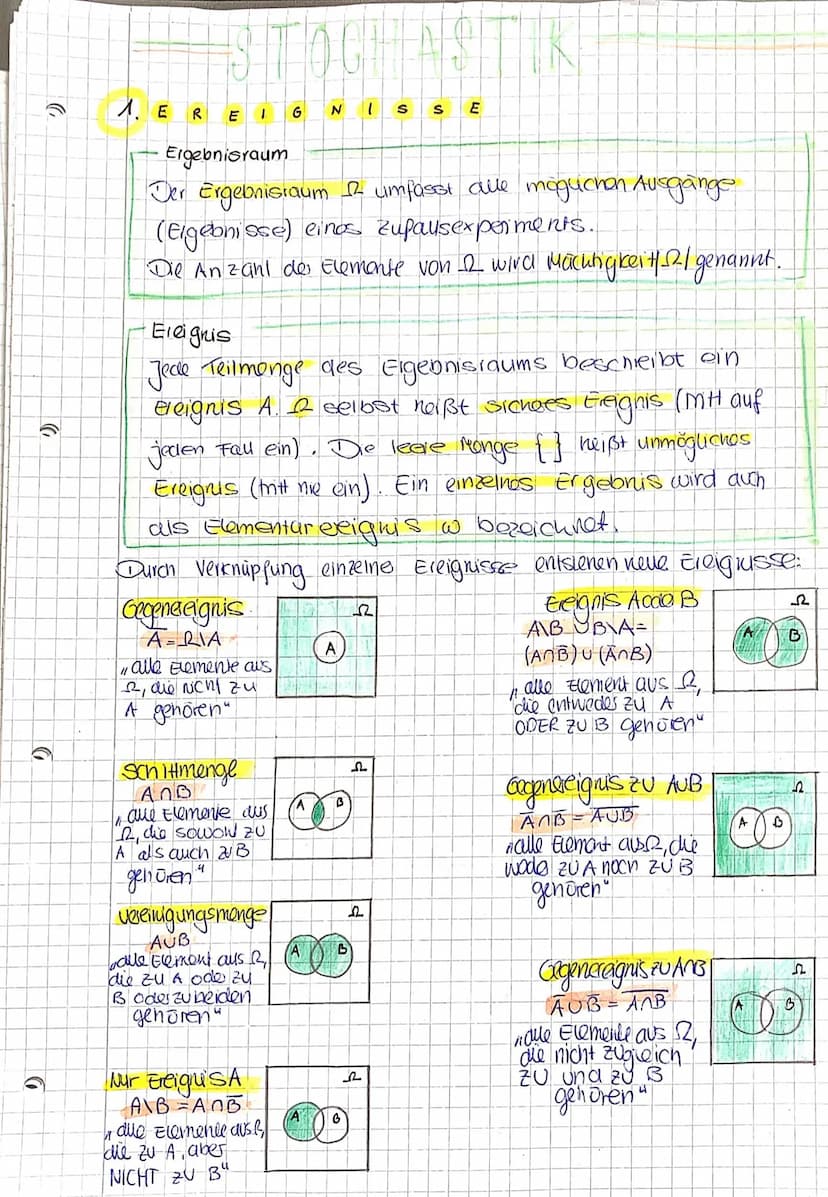 STOCHASTIK
1. EREIGNISSE
Ergebnisraum
Der Ergebnisraum Ω umfasst alle möglichen Ausgänge
(Ergebnisse) eines Zufallsexperiments.
Die Anzahl der Elemente von Ω wird Mächtigkeit |Ω| genannt.
Ereignis
Jede Teilmenge des Ergebnisraums beschreibt ein
Ereignis A. Ω selbst heißt sicheres Ereignis (tritt auf
jeden Fall ein). Die leere Menge { } heißt unmögliches
Ereignis (tritt nie ein). Ein einzelnes Ergebnis wird auch
als Elementarereignis ω bezeichnet.
Durch Verknüpfung einzelne Ereignisse entstehen neue Ereignisse:
Gegenereignis
A̅ = Ω\A
„alle Elemente aus
Ω, die nicht zu
A gehören"
Ω
A
Schnittmenge
A∩B
„alle Elemente aus
Ω, die sowohl zu
A als auch zu B
gehören"
Ω
A B
Vereinigungsmenge
A∪B
„alle Element aus Ω,
die zu A oder zu
B oder zu beiden
gehören"
Ω
A B
Nur Ereignis A
A\B = A∩B̅
„alle Elemente aus Ω,
die zu A, aber
NICHT zu B"
Ω
A B
Ereignis A oder B
A\B ∪ B\A =
(A∩B̅) ∪ (A̅∩B)
„alle Element aus Ω,
die entweder zu A
ODER zu B gehören"
Ω
A B
Gegenereignis zu A∪B
A̅∩B̅ = A̅∪̅B̅
„alle Element aus Ω, die
weder zu A noch zu B
gehören"
Ω
A B
Gegenereignis zu A∩B
A̅∪B̅ = A̅∩̅B̅
„alle Elemente aus Ω,
die nicht zugleich
zu und zu B
gehören"
Ω
A B